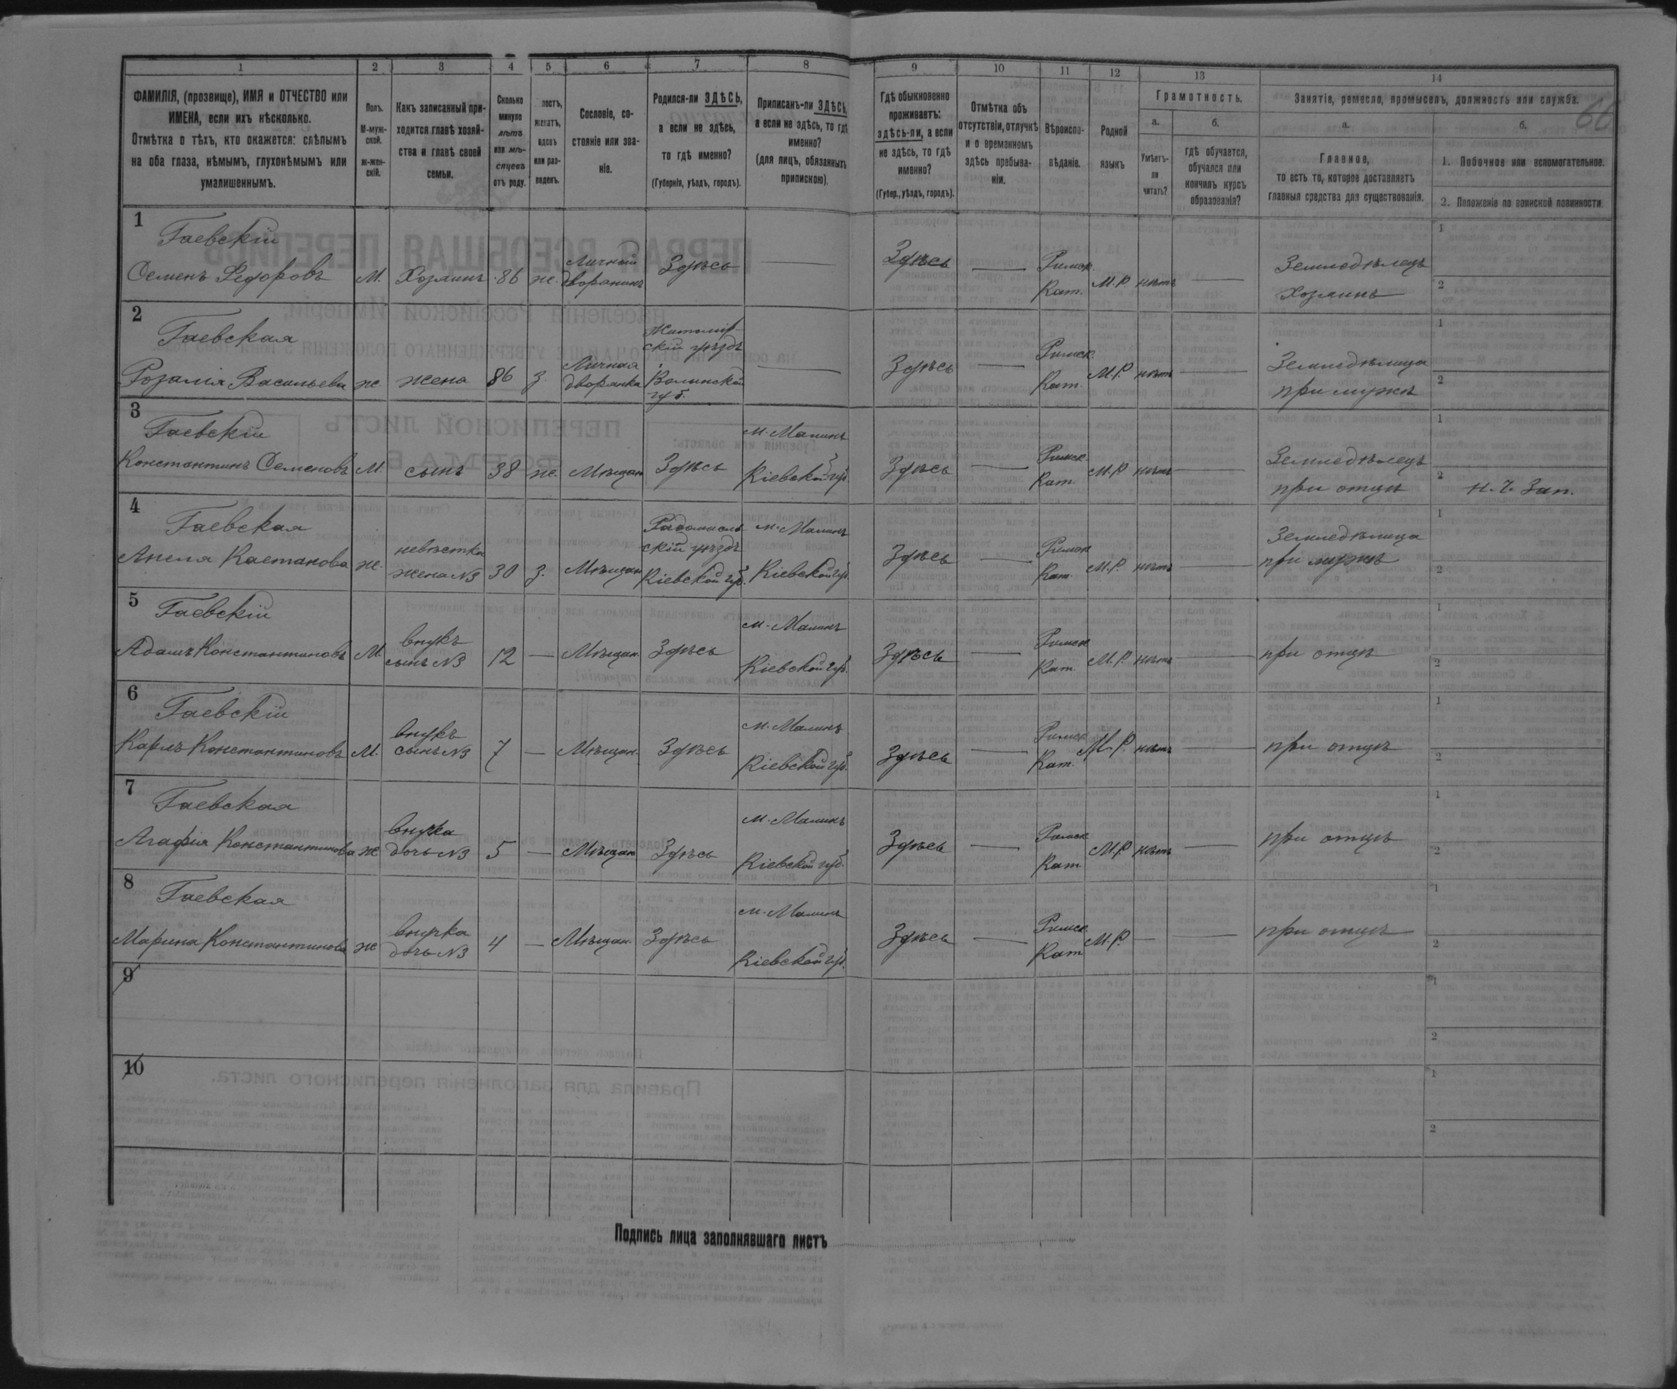 1 2 3 4 5 6 7 8 9 10 11 12 13 14
66
ФАМИЛІЯ, (прозвище), ИМЯ и ОТЧЕСТВО или
ИМЕНА, если ихъ нѣсколько.
Отмѣтка о тѣхъ, кто окажется: слѣпымъ
на оба глаза, нѣмымъ, глухонѣмымъ или
умалишеннымъ.
Полъ.
М-муж-
ской.
ж-жен-
скій.
Какъ записанный при-
ходится главѣ хозяй-
ства и главѣ своей
семьи.
Сколько
минуло
лѣтъ
или мѣ-
сяцевъ
отъ роду.
женатъ,
вдовъ
или раз-
веденъ.
Сословіе, со-
стояніе или зва-
ніе.
Родился-ли ЗДѢСЬ,
а если не здѣсь,
то гдѣ именно?
(Губернія, уѣздъ, городъ).
Приписанъ-ли ЗДѢСЬ
а если не здѣсь, то гдѣ
именно?
(для лицъ, обязанныхъ
припискою)
Гдѣ обыкновенно
проживаетъ:
здѣсь-ли, а если
не здѣсь, то гдѣ
именно?
(Губер., уѣздъ, городъ).
Отмѣтка объ
отсутствіи, отлучкѣ
и о временномъ
здѣсь пребыва-
ніи.
Вѣроиспо-
вѣданіе.
Родной
языкъ
Грамотность.
а.
Умѣетъ-
ли
читать?
б.
гдѣ обучается,
обучался или
кончилъ курсъ
образованія?
Занятіе, ремесло, промыселъ, должность или служба.
а.
Главное,
то есть то, которое доставляетъ
главныя средства для существованія.
б.
1. Побочное или вспомогательное.
2. Положеніе по воинской повинности
1
Гаевскій
Семенъ Федоровъ М. Хозяинъ 86 ж. Личный дворянинъ Здѣсь — Здѣсь — Римск. Кат. М.Р. нѣтъ — Земледѣлецъ хозяинъ
1
2
2
Гаевская
Розалія Васильева ж жена 86 з. Личная дворянка Житомирскій уѣздъ Волынской губ. — Здѣсь — Римск. Кат. М.Р. нѣтъ — Земледѣлица при мужѣ
1
2
3
Гаевскій
Константинъ Семеновъ М сынъ 38 ж. Мѣщан Здѣсь м. Малинъ Кіевской губ. Здѣсь — Римск. Кат. М.Р. нѣтъ — Земледѣлецъ при отцѣ
1
2 н. ч. Зап.
4
Гаевская
ж. невѣстка жена №3 30 з. Мѣщан Радомысльскій уѣздъ Кіевской губ. м. Малинъ Кіевской губ. Здѣсь — Римск. Кат. М.Р. нѣтъ — Земледѣлица при мужѣ
1
2
5
Гаевскій
Адамъ Константиновъ М. внукъ сынъ №3 12 — Мѣщан Здѣсь м. Малинъ Кіевской губ. Здѣсь — Римск. Кат. М.Р. нѣтъ — при отцѣ
1
2
6
Гаевскій
Карлъ Константиновъ М. внукъ сынъ №3 7 — Мѣщан. Здѣсь м. Малинъ Кіевской губ. Здѣсь — Римск. Кат. М.Р. нѣтъ — при отцѣ
1
2
7
Гаевская
Агафія Константинова ж внучка дочь №3 5 — Мѣщан Здѣсь м. Малинъ Кіевской губ. Здѣсь — Римск. Кат. М.Р. нѣтъ — при отцѣ
1
2
8
Гаевская
Марина Константинова ж внучка дочь №3 4 — Мѣщан Здѣсь м. Малинъ Кіевской губ. Здѣсь — Римск. Кат. М.Р. — — при отцѣ
1
2
9
1
2
10
1
2
Подпись лица заполнявшаго листъ